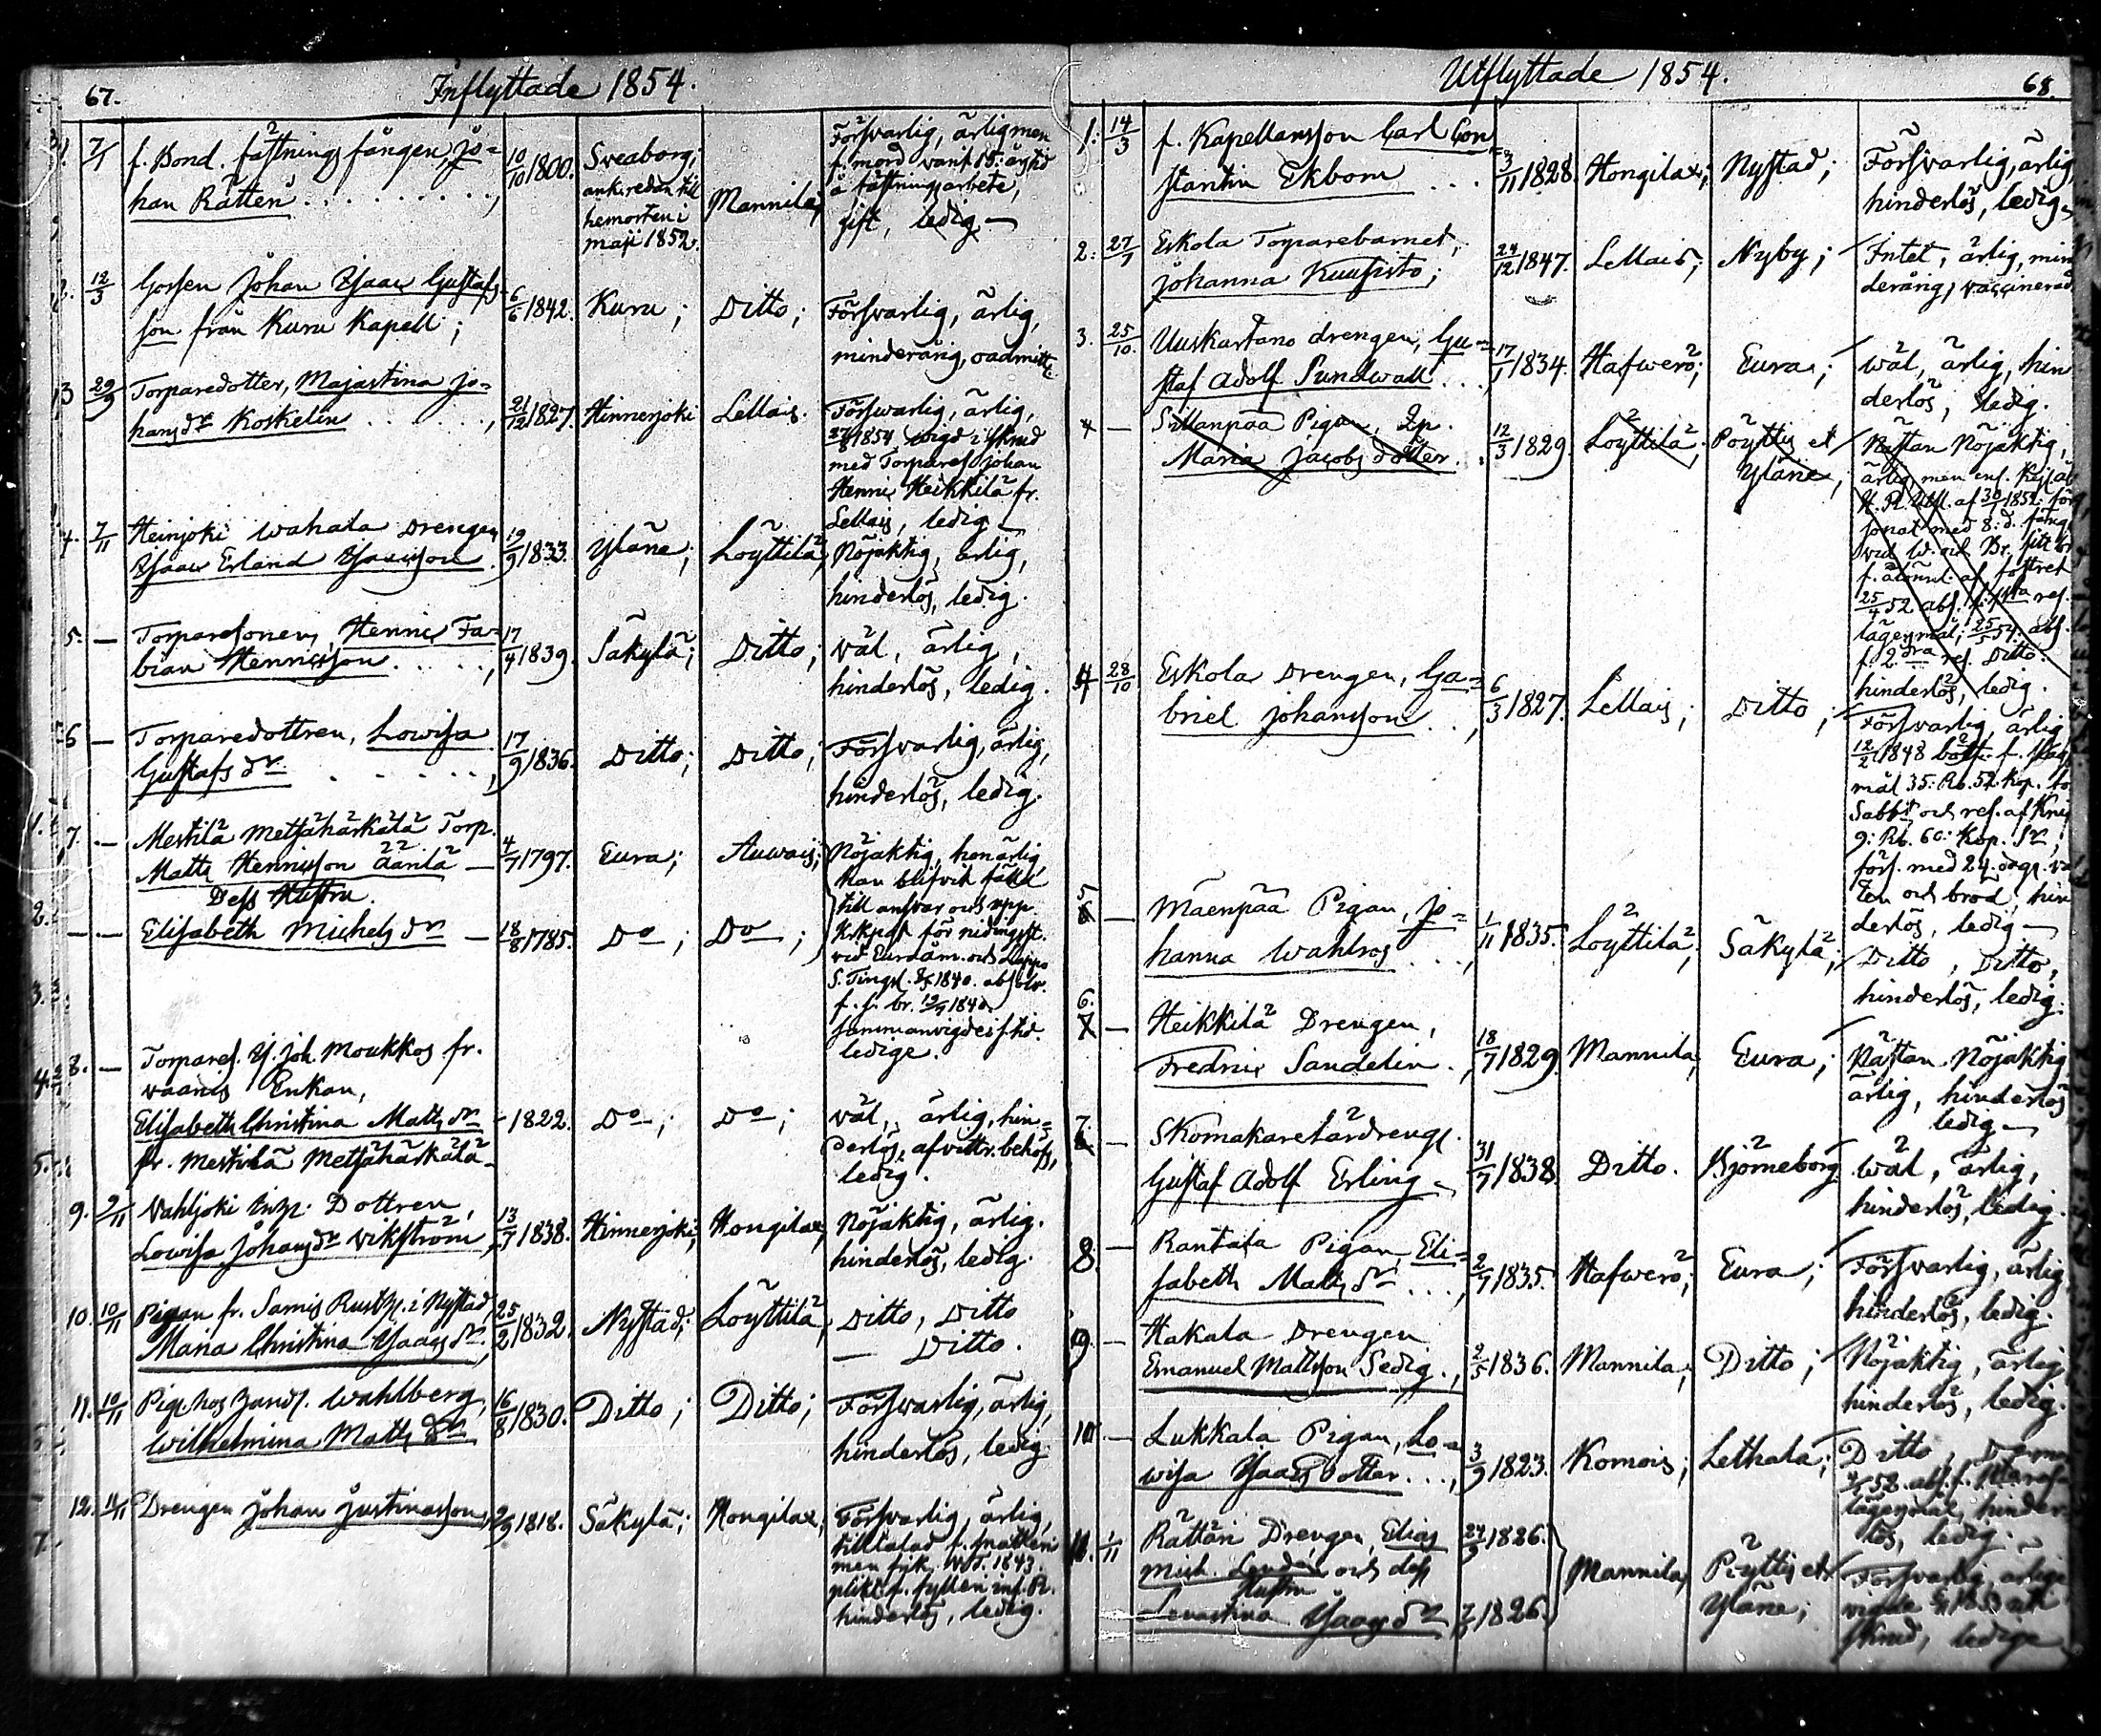 67.
Inflyttade 1854.
1. 7/1 f. Bond. fästnings fången, Jo-
han Rätten . . . . . . . . . ,
10/10 1800.
Sveaborg;
ank. redan till
hemorten i
maji 1852.
Mannila;
Försvarlig, ärlig men
f. mord varit 15: års tid
å fästningsarbete,
gift, ledig —
2. 12/3 Gossen Johan Isaac Gustafs-
son från Kuru Kapell ;
6/6 1842. Kuru ; Ditto ;
Försvarlig, ärlig,
minderårig, oadmitt.
3 29/9 Torparedotter, Majastina Jo-
hans dr Koskelin . . . . . . ,
21/12 1827. Hinnerjoki Lellais.
Försvarlig, ärlig,
27/8 1854 vigd i skrud
med Torpares. Johan
Henric Heikkilä fr.
Lellais, ledig —
4. 7/11 Heinjoki Wahala Drengen
Isaac Erland Isaacsson .
19/9 1833. Yläne; Löyttilä;
Nöjaktig, ärlig,
hinderlös, ledig.
5. — Torparesonen, Henric Fa-
bian Henricsson . . . . . ,
17/4 1839. Säkylä; Ditto ;
wäl, ärlig,
hinderlös, ledig.
6 — Torparedottren, Lowisa
Gustafs dr. . . . . . . ,
17/9 1836. Ditto; Ditto;
Försvarlig, ärlig,
hinderlös, ledig.
7. — Mestilä Metsähärkälä Torp.
Matts Henricsson Äänlä —
4/7 1797. Eura; Auvais;
Nöjaktig, hon ärlig,
han blifvit fälld
till ansvar och upp.
Dess Hustru.
— — Elisabeth Michels dr —
18/8 1785. Do ; Do ;
Kkpl för nidingst.
vid Euraåm. och Lappo
S. Tingsl. 1840. absolv.
f. s. br. 19/4 1840.
sammanvigde i s. tid.
ledige.
8. — Torpares. Is. Joh. Moukkos fr.
vaanis Enkan,
Elisabeth Christina Matts dr
fr. Mestilä Metsähärkälä
- 1822. Do ; Do ;
väl, ärlig, hin-
derlös, afvittr. behöfs,
ledig.
9. 9/11 Vahljoki Inhp. Dottren,
Lowisa Johans dr Vikström ,
13/7 1838. Hinnerjoki; Hongilax;
Nöjaktig, ärlig.
hinderlös, ledig.
10. 10/11 Pigan fr. Samis Rusth. i Nystad,
Maria Christina Isaacs dr. ,
25/2 1832. Nystad; Löyttilä ;
Ditto, Ditto
— Ditto.
11. 10/11 Pig. hos Handl. Wahlberg,
Wilhelmina Matts dr
16/8 1830. Ditto ; Ditto;
Försvarlig, ärlig,
hinderlös, ledig.
12. 11/11 Drengen Johan Justinasson,
2/9 1818. Säkylä; Hongilax;
Försvarlig, ärlig,
tilltalad f. snatteri
men fick W.T. 1843.
plikt f. fylleri inf. R.
hinderlös, ledig.
Utflyttade 1854.
68.
1. 14/3 f. Kapellansson Carl Con-
stantin Ekbom . . .
3/11 1828. Hongilax; Nystad;
Försvarlig, ärlig
hinderlös, ledig
2. 27/7 Eskola Torparebarnet,
Johanna Kuusisto;
24/12 1847. Lellais; Nyby;
Intet, ärlig, min
derårig, vaccinerad
3. 25/10. Uuskartano drengen, Gu-
staf Adolf Sundwall . .
17/1 1834. Hafwerö; Eura;
wäl, ärlig, hin
derlös, ledig.
4 — Sillanpää Pigan, Qp.
Maria Jacobs dotter. .
12/3 1829. Löyttilä; Pöyttis et
Yläne;
Nästan Nöjaktig,
ärlig, men enl. Kejs. Åb
H. R. Utsl. af 30/1 1852. för
sonat med 8: d. fäng.
vid W. och Br. sitt br.
f. å lönnl. af fostret
25/4 52 abs. f. 1sta res.
lägersmål; 25/5 54. abs.
f. 2dra res. Ditto.
hinderlös, ledig.
4 28/10 Eskola Drengen, Ga-
briel Johansson . . ,
6/3 1827. Lellais; Ditto ;
Försvarlig, ärlig
12/2 1848 bött f.
mål 35: Rb. 52. Kop.
Sabbt. och res. af
9: Rb. 60: Kop. Sr;
förs. med 24. dagr.
ten och bröd; hin
derlös, ledig —
5 — Mäenpää Pigan, Jo-
hanna Wahlros . . . ,
1/11 1835. Löyttilä; Säkylä;
Ditto, Ditto,
hinderlös, ledig.
6. — Heikkilä Drengen,
Fredric Sandelin . ,
18/7 1829. Mannila; Eura;
Nästan Nöjaktig
ärlig, hinderlös
ledig —
7. — Skomakarelärdrengs.
Gustaf Adolf Erling —
31/7 1838. Ditto. Björneborg
wäl, ärlig,
hinderlös, ledig.
8. — Rantala Pigan, Eli-
sabeth Matts dr . . . ,
2/7 1835. Hafwerö; Eura;
Försvarlig, ärlig
hinderlös, ledig.
9. — Hakala Drengen
Emanuel Mattsson Sedig. ,
2/5 1836. Mannila; Ditto ;
Nöjaktig, ärlig
hinderlös, ledig.
10. — Lukkala Pigan, Lo-
wisa Isaacs dotter . . . ,
3/9 1823. Komois; Lethala;
Ditto,
abs. f.
lägersmål, hinder-
lös, ledig.
11. 1/11 Rättäri Drengen, Elias
Mich. och dess
Hustru
Isaacs dr
24/9 1826.
1826.
Mannila; Pöyttis et
Yläne;
Försvarlig, ärlige
vigde 1853
skrud, ledige